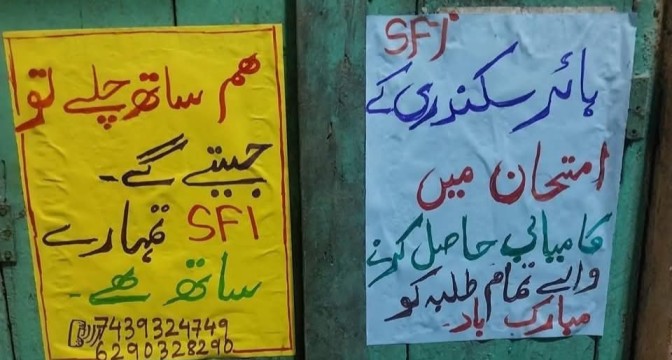 ہم ساتھ چلے تو
جیتے گے۔
SFI تمہارے
ساتھ ہے۔
7439324749
6290328290
SFI
ہائر سکنڈری کے
امتحان میں
کامیابی حاصل کرنے
والے تمام طلبہ کو
مبارک باد۔